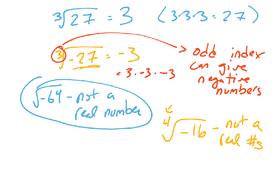 ∛27 = 3 (3·3·3 = 27)
∛-27 = -3
= -3 · -3 · -3
odd index
can give
negative
numbers
√-64 - not a
real number
∜-16 - not a
real #s